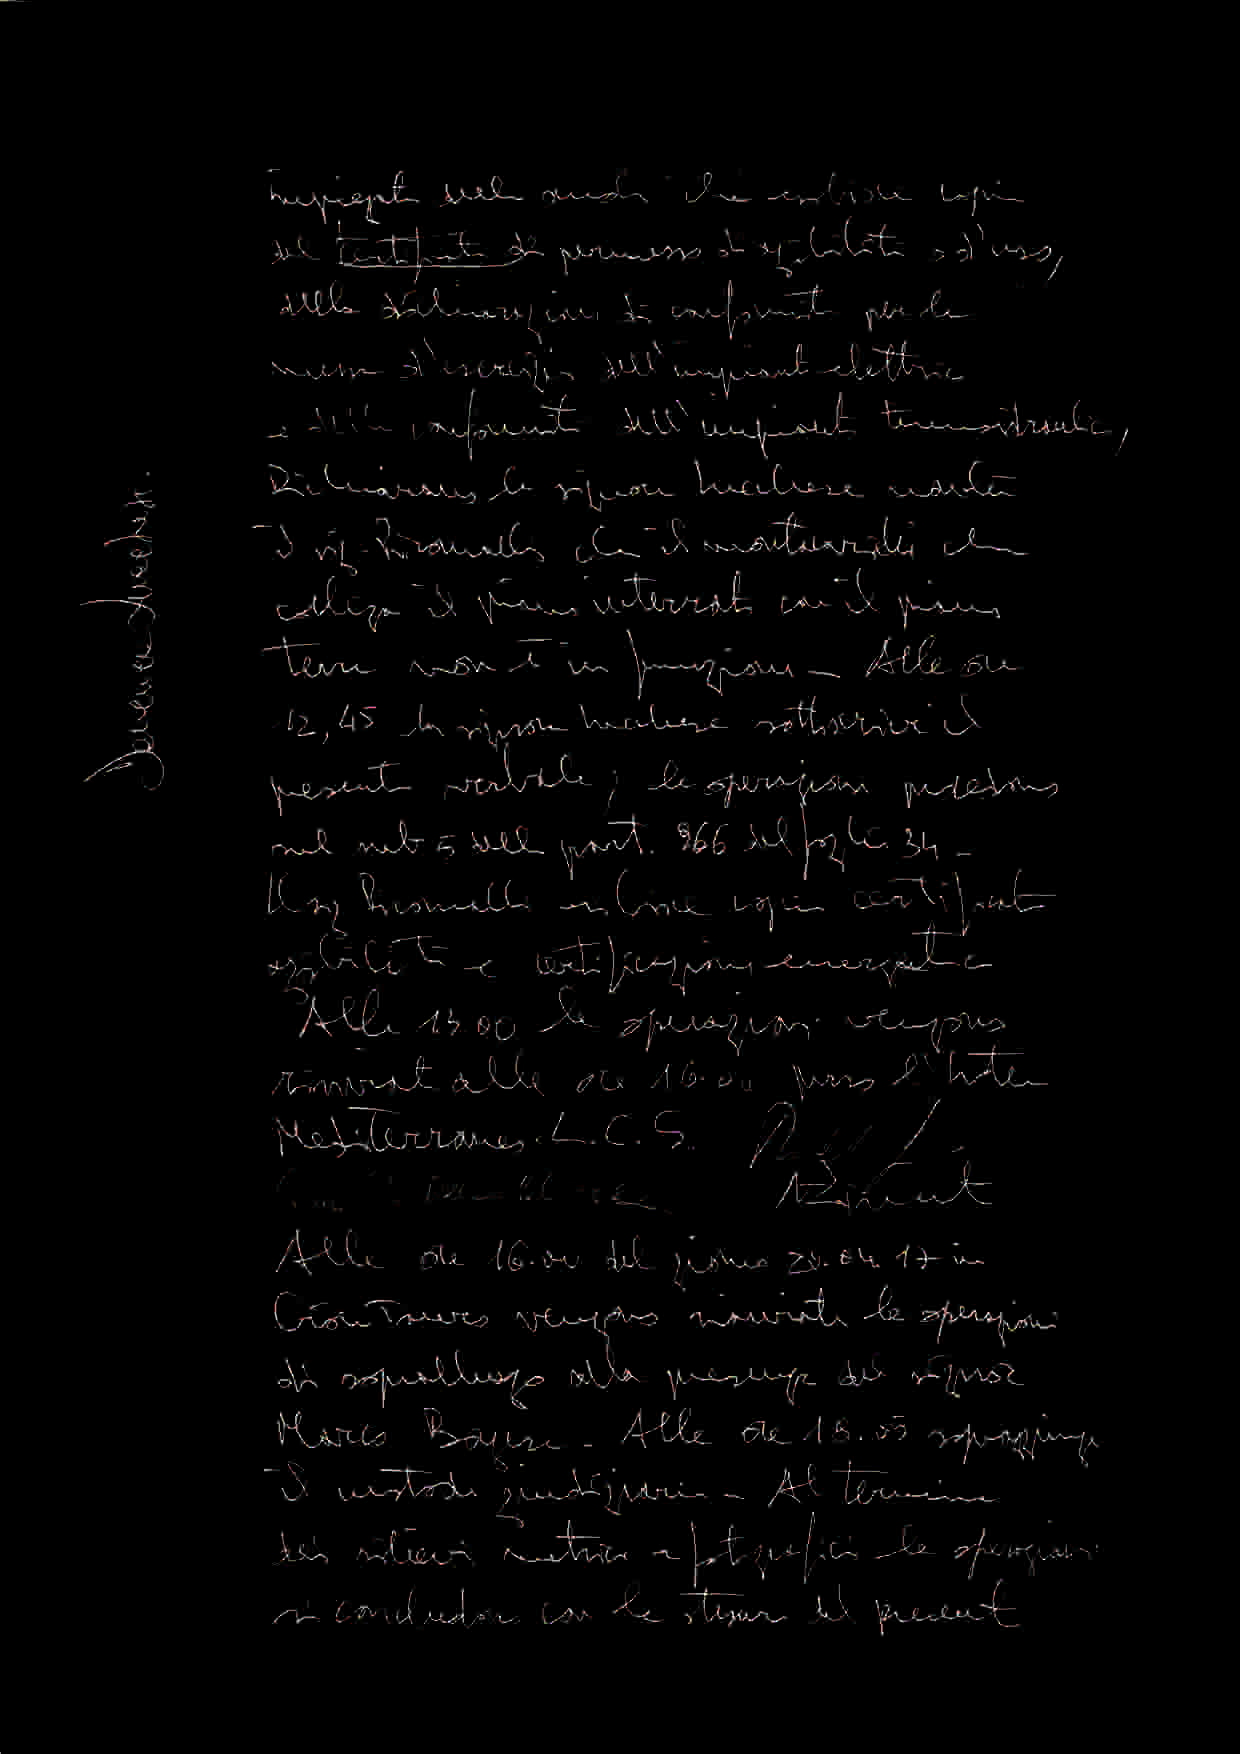 impiegata della che esibisce copia
del certificato di permesso di agibilità e d'uso,
della dichiarazione di conformità per la
messa d'esercizio dell'impianto elettrico
e della conformità dell'impianto termoidraulico,
Dichiarano la signora Maltese nonché
il sig. che il montacarichi che
collega il piano interrato con il piano
terra non è in funzione - Alle ore
12,45 la signora Maltese sottoscrive il
presente verbale; le operazioni procedono
nel sub 5 della part. 966 del foglio 34 -
Il sig esibisce copia certificato
agibilità e certificazione energetica
Alle 13.00 le operazioni vengono
rinviate alle ore 16.00 presso l'hotel
Mediterraneo. L.C.S.
Alle ore 16.00 del giorno 20.04.17 in
vengono rinviate le operazioni
di sopralluogo alla presenza del signor
Marco - Alle ore 18.05 sopraggiunge
il custode giudiziario - Al termine
dei rilievi metrici e fotografici le operazioni
si concludono con la stesura del presente